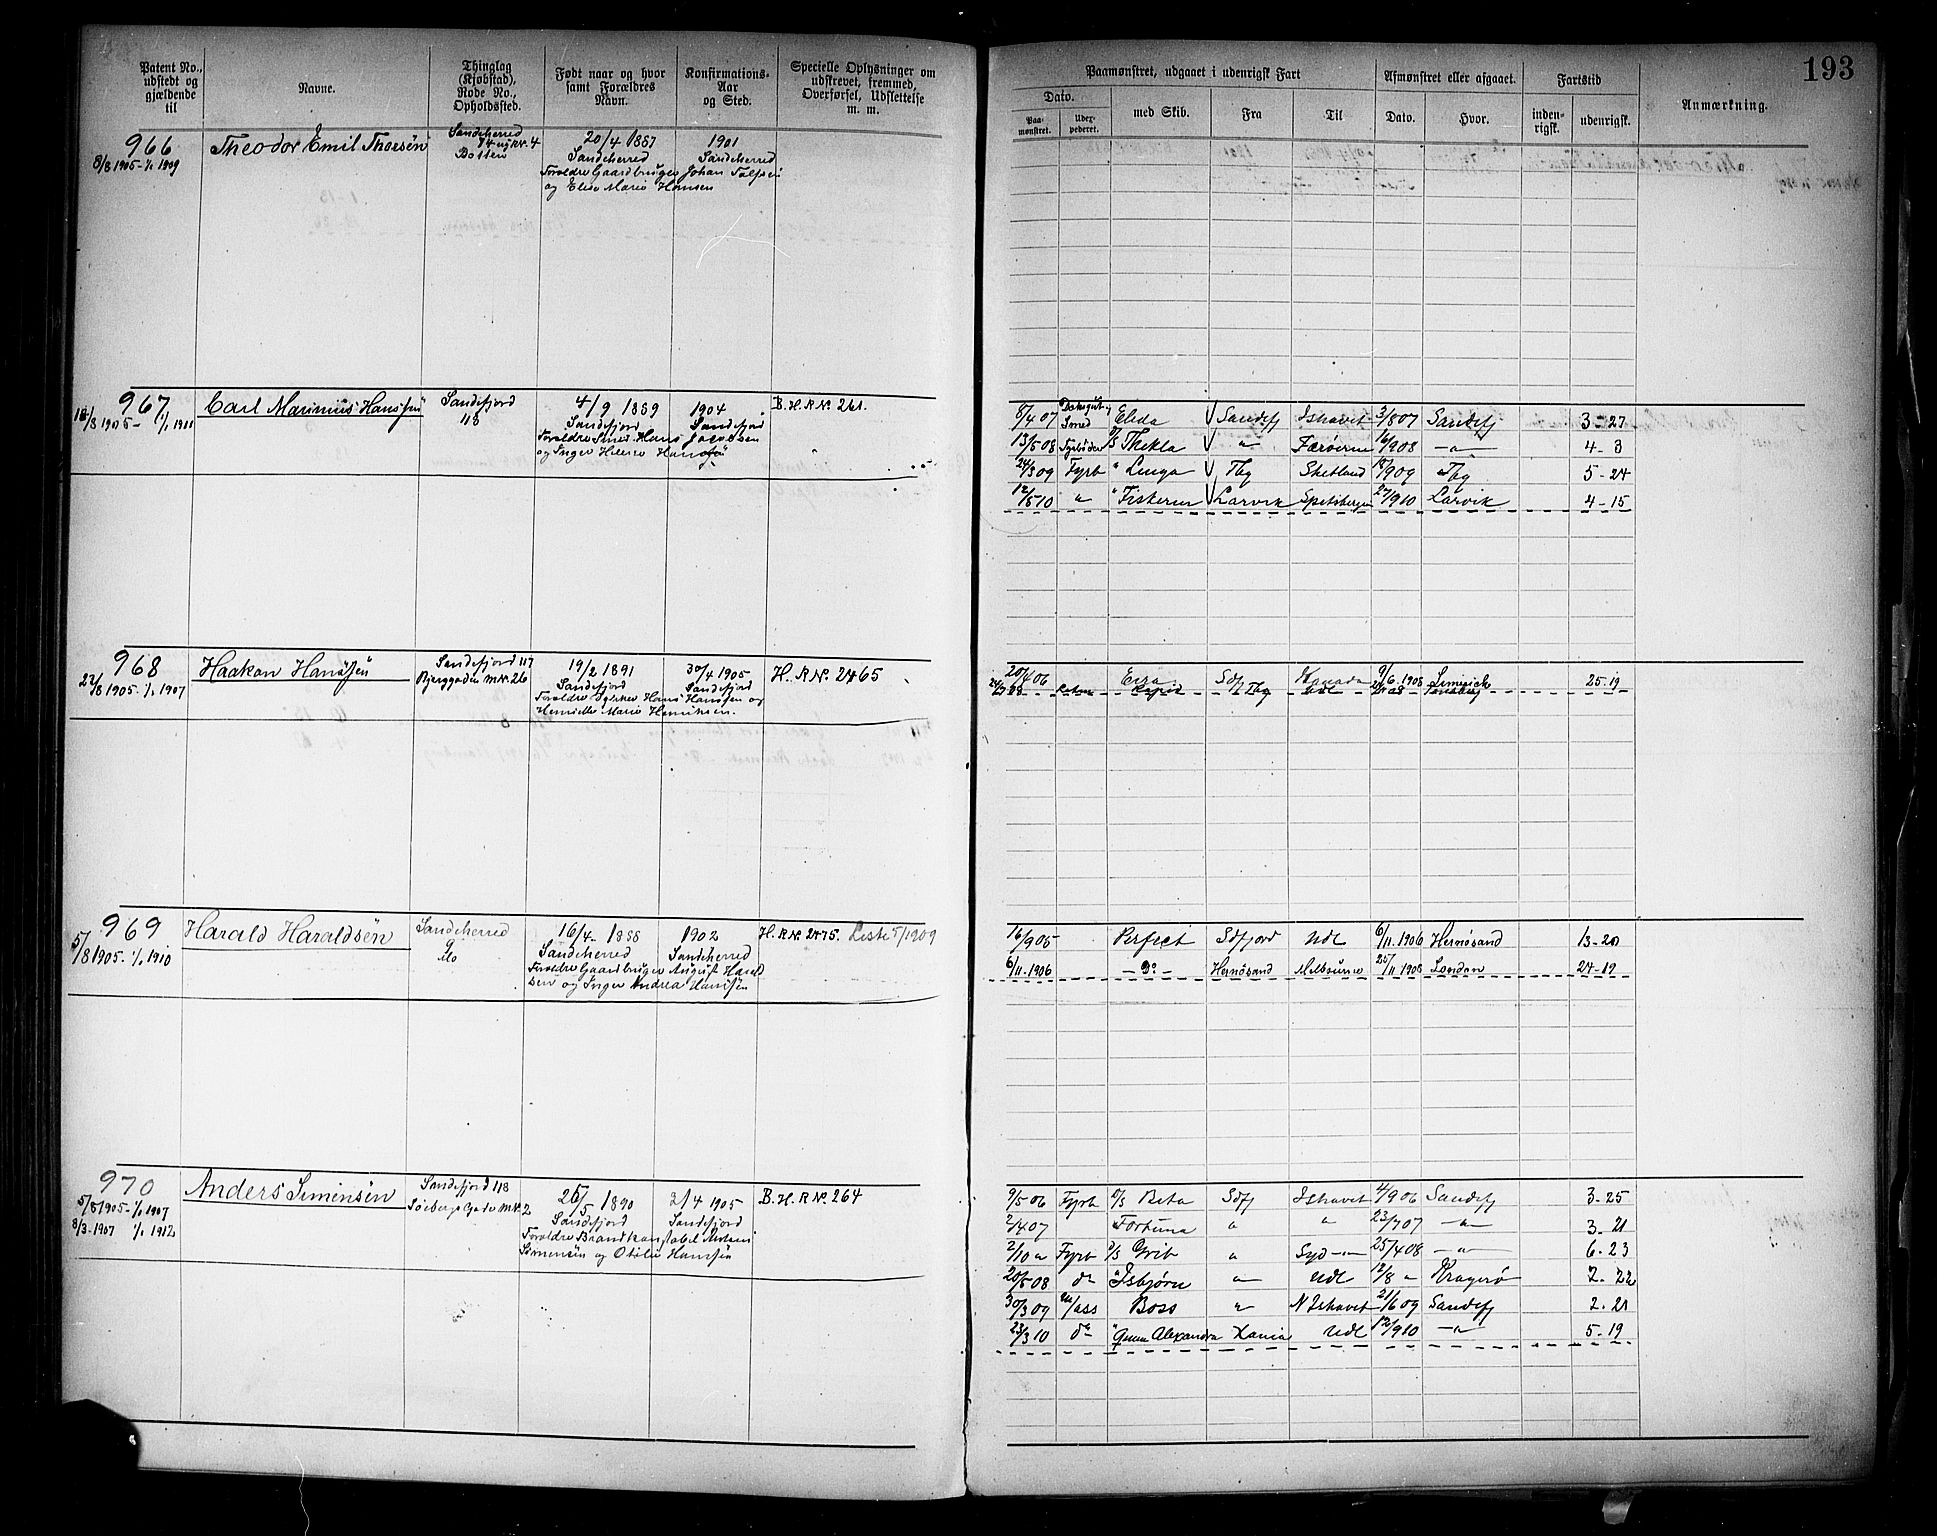 193
Patent No., udstedt og gjældende til
Navne.
Thinglag (Kjøbstad), Rode No., Opholdssted.
Født naar og hvor samt Forældres Navn.
Konfirmations-Aar og Sted.
Specielle Oplysninger om udskrevet, fremmed, Overførsel, Udslettelse m. m.
Paamønstret, udgaaet i udenrigsk Fart
Afmønstret eller afgaaet.
Fartstid
Anmærkning.
Dato.
Paa-mønstret.
med Skib.
Fra
Til
Dato.
Hvor.
inden-rigsk.
udenrigsk.
966
8/8 1905 - 1/1 1909
Theodor Emil
Sandeherred
20/4 1887
Sandeherred
Forældre Gaardbruger Johan
og Elise Marie Hansen
1901
Sandeherred
967
Carl Marinius Hanssen
Sandefjord
118
4/9 1889
Sandefjord
Forældre Smed Hans Jacobsen
og Inger Helene
1904
Sandefjord
B. H. R No. 261.
8/4 07 Smed Elida Sandefj Ishavet 3/8 07 Sandefj 3-27
13/5 08 Fyrbøder D/S Thekla " Færøerne 16/9 08 -"- 4-3
24/3 09 Fyrb " Lenga Tbg Shetland 18/9 09 Tbg 5-24
12/5 10 " " Fiskeren Larvik Spetsbergen 27/9 10 Larvik 4-15
968
22/8 1905 - 1/1 1907
Haakon Hanssen
Sandefjord 117
Bjerggaden M.No. 26
19/2 1891
Sandefjord
Forældre Hans Hanssen og
Marie Henriksen.
30/4 1905
Sandefjord
H. R No. 2465
20/4 06 Sdfj Kanada 9/6 1908 Limerick 25-19
Rapid Tbg Udl
969
5/8 1905 - 1/1 1910
Harald Haraldsen
Sandeherred
9
Mo
16/4 - 1888
Sandeherred
Forældre Gaardbruger August Harald
sen og Inger Andrea Hanssen
1902
Sandeherred
H. R No. 2475. Liste 5/1909
16/9 05 Perfect Sdfjord Udl 6/11 1906 Hernøsand 13-20
6/11 1906 - Do - Hernøsand Melbourne 25/11 1908 London 24-19
970
5/8 1905 - 1/1 1907
8/3 - 1907 1/1 1912
Anders Simensen
Sandefjord 118
Søebergs Gade M.No. 2
1890
Sandefjord
Forældre Brandkonstabel
Simensen og Otilie Hansen
2/4 1905
Sandefjord
B. H. R No. 264
9/5 06 Fyrb D/S Beta Sdfj Ishavet 4/9 06 Sandefj 3-25
2/4 07 Fortuna " " 23/7 07 -"- 3-21
2/10 " Fyrb D/S Grib " Syd-"- 25/4 08 -"- 6-23
20/5 08 do " Isbjørn " Udl 12/8 " Kragerø 2-22
30/3 09 M/ass Boss " N Ishavet 21/6 09 Sandefj 2-21
23/3 10 do " Queen Alexandra Xania Udl 12/9 10 -"- 5-19